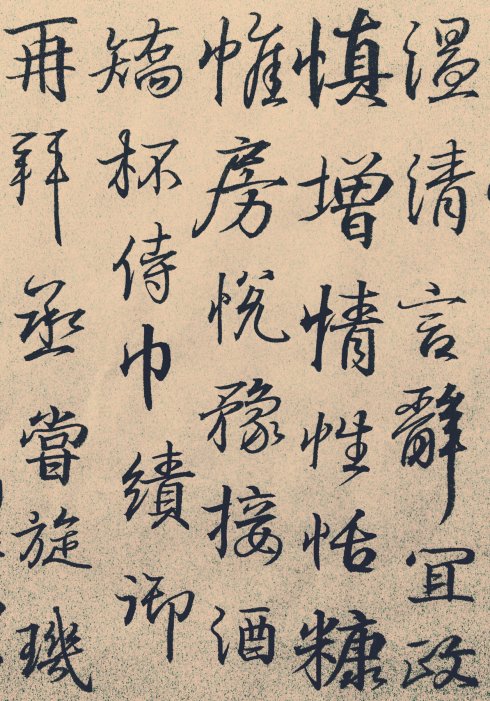 温清言辭宜政
慎增情性恬糠
帷房悅豫接酒
矯杯侍巾績御
再拜烝嘗旋璣